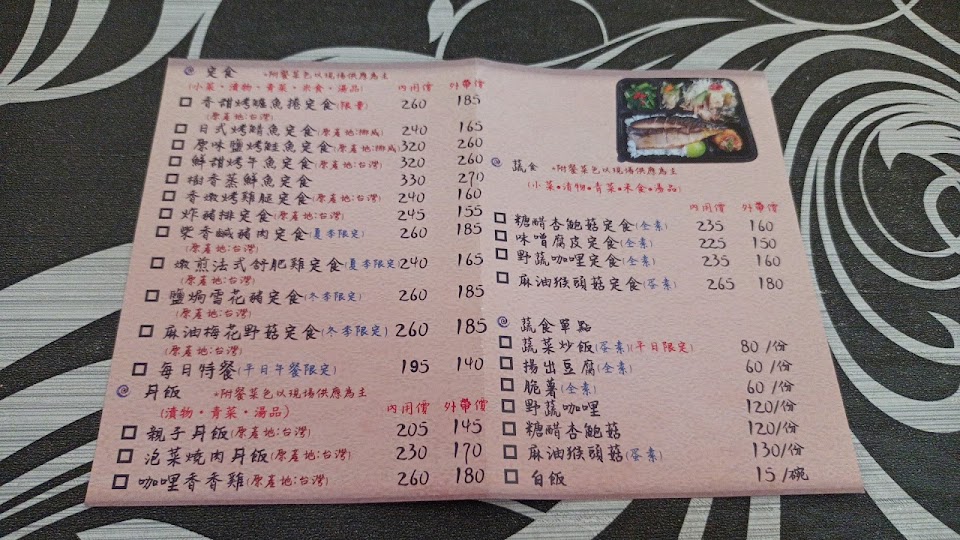 定食 *附餐菜色以現場供應為主
(小菜•漬物•青菜•米食•湯品) 內用價 外帶價
香甜烤鱸魚捲定食(限量) 260 185
(原產地:台灣)
日式烤鯖魚定食(原產地:挪威) 240 165
原味鹽烤鮭魚定食(原產地:挪威) 320 260
鮮甜烤午魚定食(原產地:台灣) 320 260
樹香蒸鮮魚定食 330 270
香燉烤雞腿定食(原產地:台灣) 240 160
炸豬排定食(原產地:台灣) 245 155
柴香鹹豬肉定食(夏季限定) 260 185
(原產地:台灣)
燉煎法式舒肥雞定食(夏季限定) 240 165
(原產地:台灣)
鹽焗雪花豬定食(冬季限定) 260 185
(原產地:台灣)
麻油梅花野菇定食(冬季限定) 260 185
(原產地:台灣)
每日特餐(平日午餐限定) 195 140
丼飯 *附餐菜色以現場供應為主
(漬物•青菜•湯品) 內用價 外帶價
親子丼飯(原產地:台灣) 205 145
泡菜燒肉丼飯(原產地:台灣) 230 170
咖哩香香雞(原產地:台灣) 260 180
蔬食 *附餐菜色以現場供應為主
(小菜•漬物•青菜•米食•湯品)
內用價 外帶價
糖醋杏鮑菇定食(全素) 235 160
味噌腐皮定食(全素) 225 150
野蔬咖哩定食(全素) 235 160
麻油猴頭菇定食(蛋素) 265 180
蔬食單點
蔬菜炒飯(蛋素)(平日限定) 80/份
揚出豆腐(全素) 60/份
脆薯(全素) 60/份
野蔬咖哩 120/份
糖醋杏鮑菇 120/份
麻油猴頭菇(蛋素) 130/份
白飯 15/碗